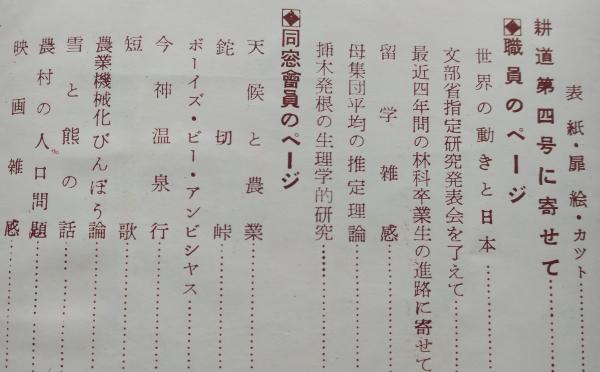 表紙・扉絵・カット
耕道第四号に寄せて
職員のページ
世界の動きと日本
文部省指定研究発表会を了えて
最近四年間の林科卒業生の進路に寄せて
留学雑感
母集団平均の推定理論
挿木発根の生理学的研究
同窓會員のページ
天候と農業
鉈切峠
ボーイズ・ビー・アンビシヤス
今神温泉行
短歌
農業機械化びんぼう論
雪と熊の話
農村の人口問題
映画雑感